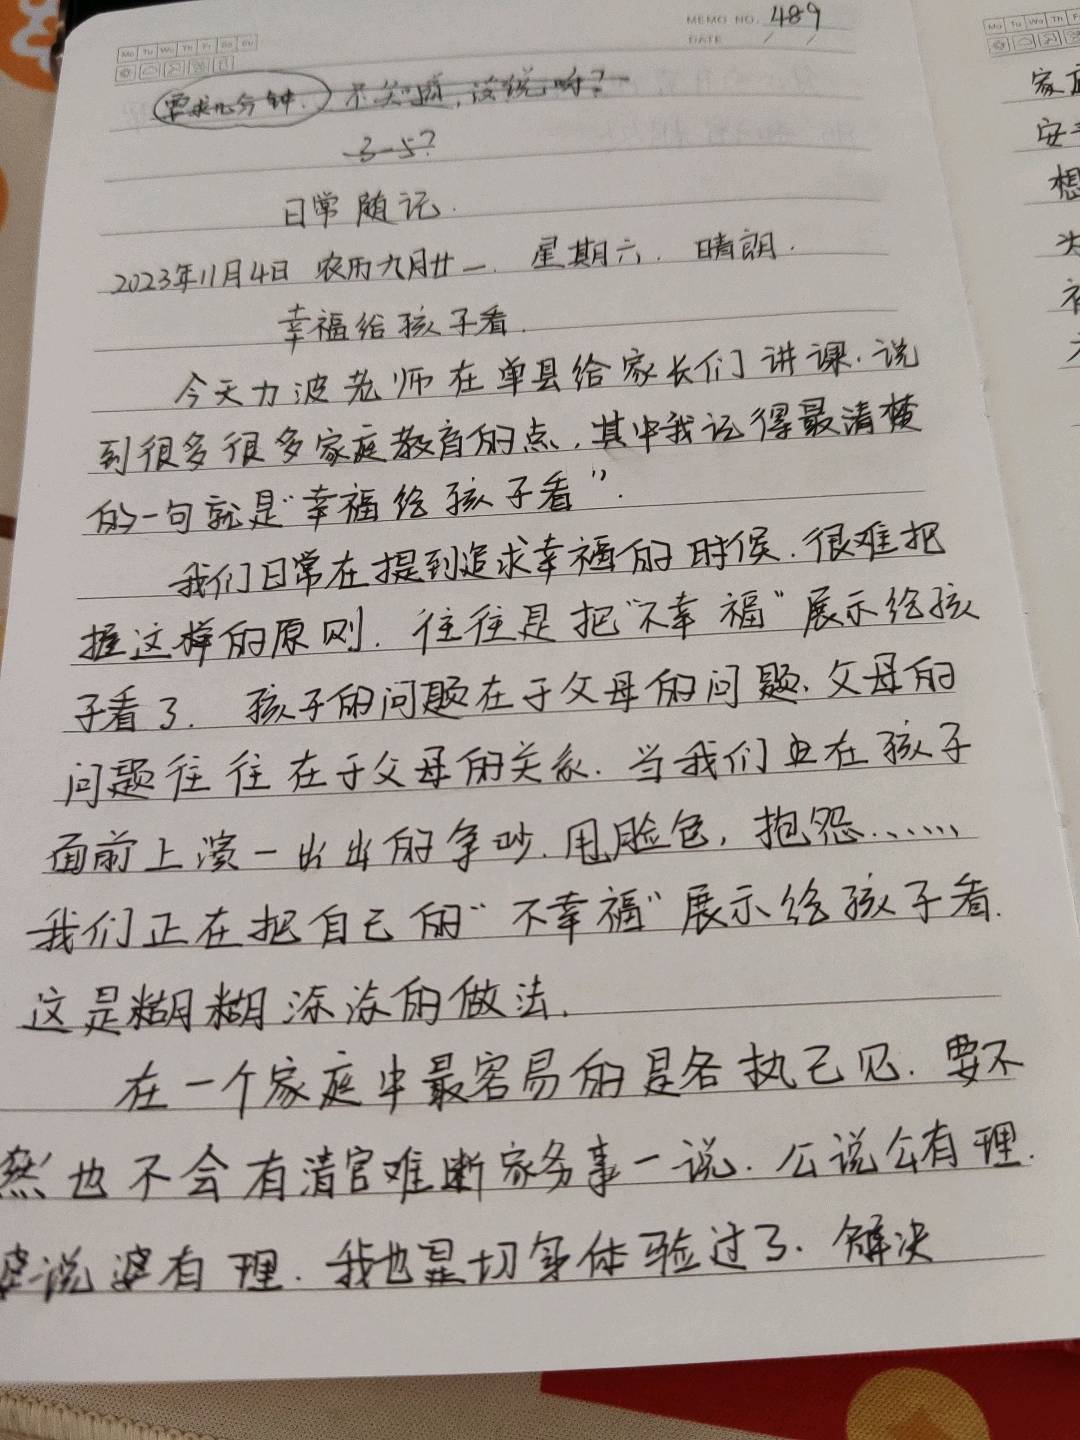 MEMO NO. 489
DATE / /
Mo Tu We Th Fr Sa Su
要求几分钟. 不知道,该说啥?
3-5?
日常随记.
2023年11月4日 农历九月廿一. 星期六. 晴朗.
幸福给孩子看.
今天力波老师在单县给家长们讲课.说
到很多很多家庭教育的点,其中我记得最清楚
的一句就是“幸福给孩子看”.
我们日常在提到追求幸福的时候.很难把
握这样的原则.往往是把“不幸福”展示给孩
子看了. 孩子的问题在于父母的问题.父母的
问题往往在于父母的关系.当我们在孩子
面前上演一出出的争吵.甩脸色,抱怨......
我们正在把自己的“不幸福”展示给孩子看.
这是糊糊涂涂的做法.
在一个家庭中最容易的是各执己见.要不
然也不会有清官难断家务事一说.公说公有理.
婆说婆有理.我也是切身体验过了.解决
Mo Tu We Th F
家庭
安
想